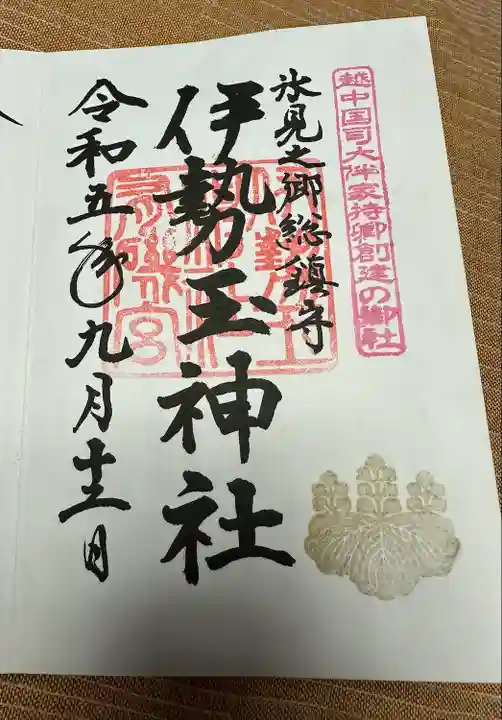 越中国司大伴家持卿創建の御社
氷見之御総鎮守
伊勢玉神社
令和五年九月十三日